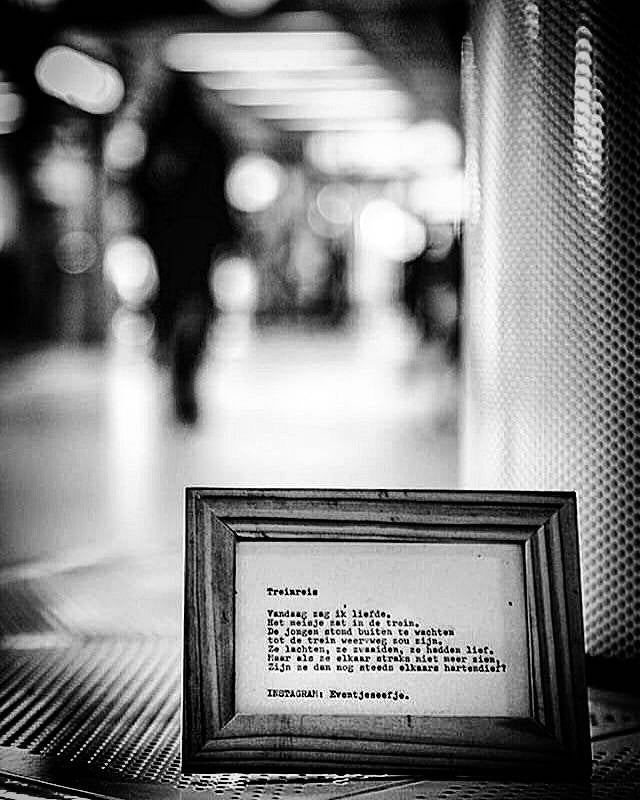 Treinreis
Vandaag zag ik liefde.
Het meisje zat in de trein.
De jongen stond buiten te wachten
tot de trein weer weg zou zijn.
Ze lachten, ze zwaaiden, ze hadden lief.
Maar als ze elkaar straks niet meer zien,
Zijn ze dan nog steeds elkaars hartendief?
INSTAGRAM: Eventjeseefje.